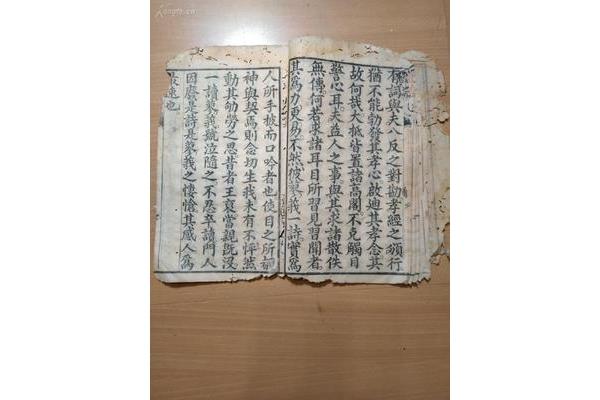 詞與夫八反之對勸孝經之頒行
猶不能勃發其孝心啟迪其孝念其
故何哉大抵皆置諸高閣不克觸目
警心耳夫益人之事與其求諸散佚
無傳何若求諸耳目所習見習聞者
其為力更易不然彼蓼莪一詩實為
人所手披而口吟者也使目之所
神與契焉則念切生我未有不怦然
動其劬勞之思昔者王裒當親既沒
一讀蓼莪號泣隨之不忍卒讀門人
因廢是詩是蓼莪之悽愴其感人為
速也